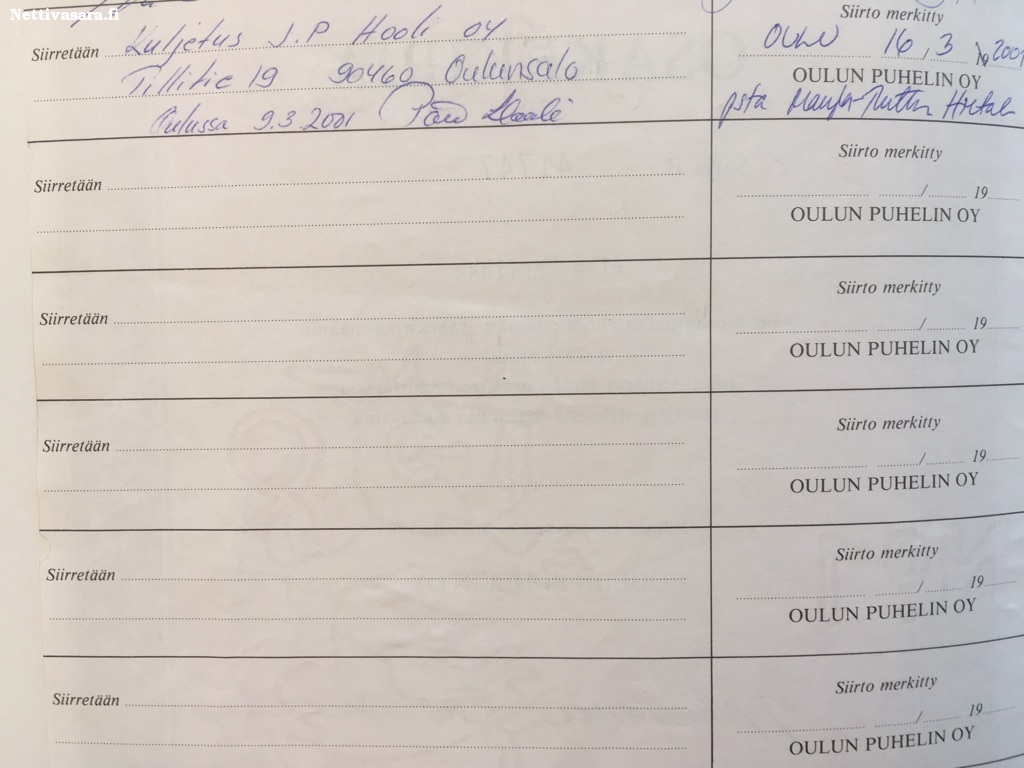 Nettivasara.fi
Siirto merkitty
Siirretään Kuljetus J.P Hooli OY
OULU 16.3 19 2001
Tillitie 19 90460 Oulunsalo
OULUN PUHELIN OY
Oulussa 9.3.2001
psta
Siirto merkitty
Siirretään
/ 19
OULUN PUHELIN OY
Siirto merkitty
Siirretään
/ 19
OULUN PUHELIN OY
Siirto merkitty
Siirretään
/ 19
OULUN PUHELIN OY
Siirto merkitty
Siirretään
/ 19
OULUN PUHELIN OY
Siirto merkitty
Siirretään
/ 19
OULUN PUHELIN OY